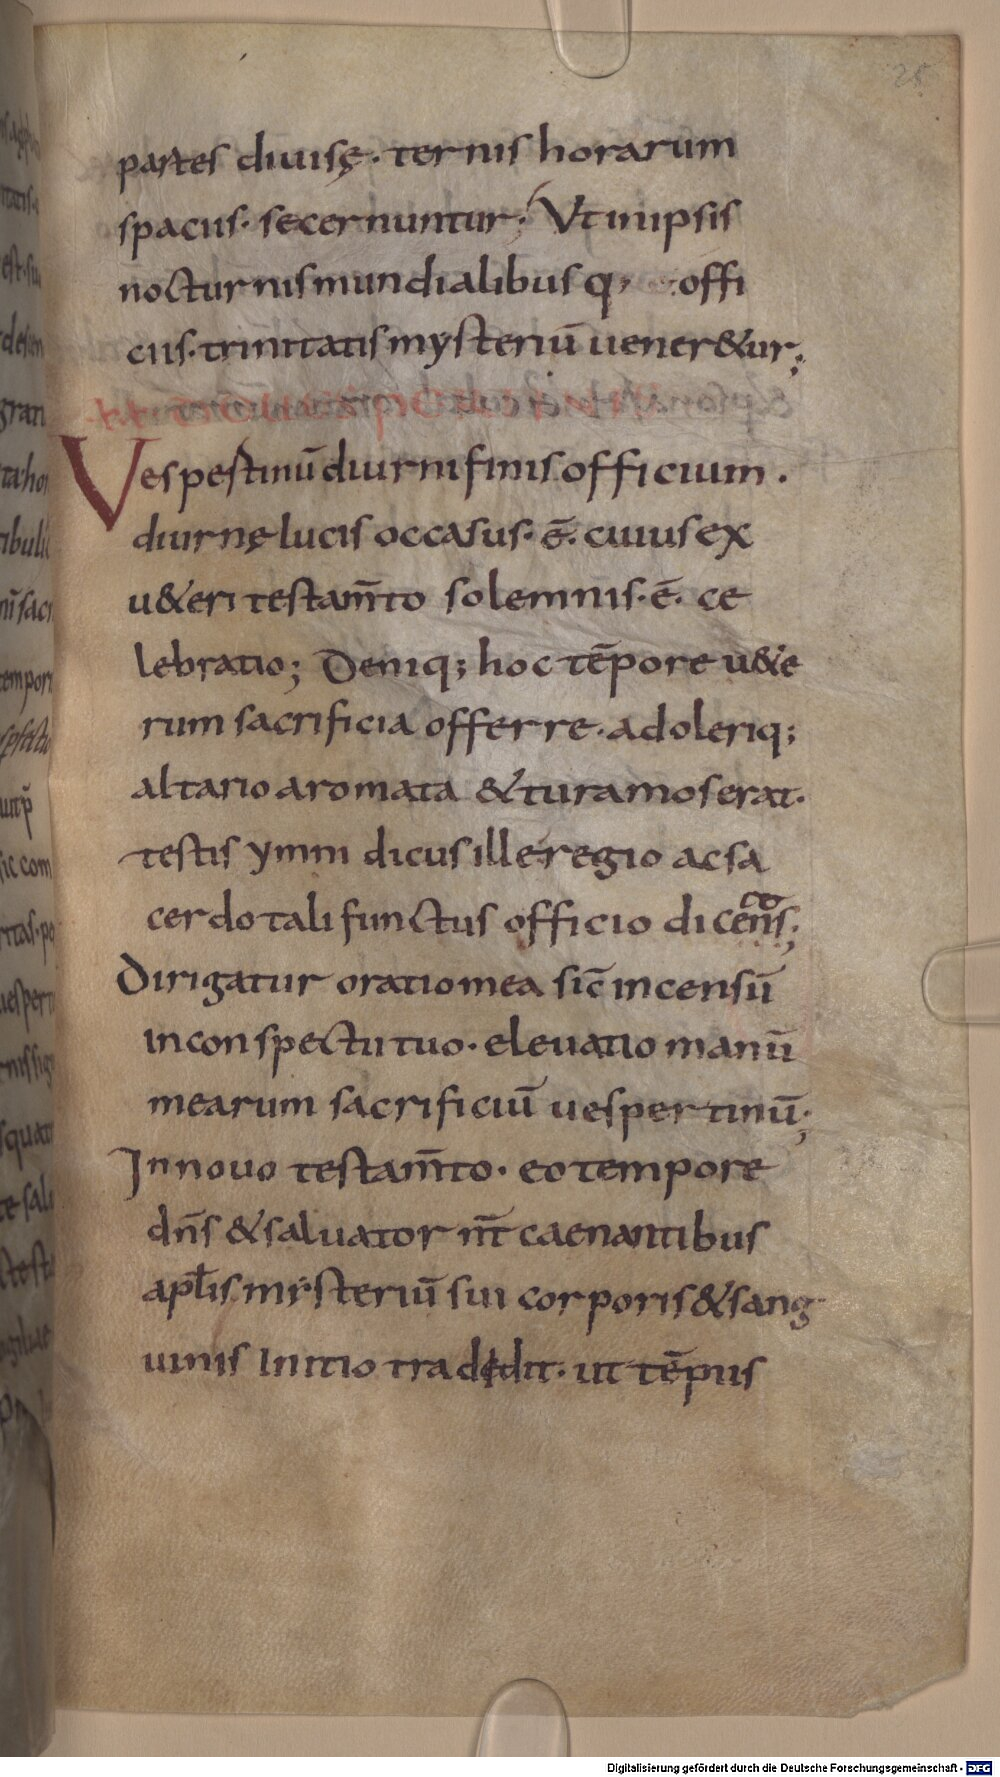 25
partes diuisę. ternis horarum
spaciis. secernuntur; Vt in ipsis
nocturnis mundialibus q; offi
ciis. trinitatis mysteriū uener&ur;
Vespestinū diurni finis officium.
diurnę lucis occasus. ē. cuius ex
u&eri testam̄to solemnis. ē. ce
lebratio; Deniq; hoc tēpore u&e
rum sacrificia offerre. adoleriq;
altario aromata & tura mos erat.
testis ymni dicus ille regio ac sa
cerdotali functus officio dicens;
Dirigatur oratio mea sic̄ incensū
in conspectu tuo. eleuatio manū
mearum sacrificiū uespertinū;
In nouo testam̄to. eo tempore
dn̄s & saluator nr̄ caenantibus
apl̄is mẏsteriū sui corporis & sang
uinis initio tradidit. ut tēpus
Digitalisierung gefördert durch die Deutsche Forschungsgemeinschaft - DFG